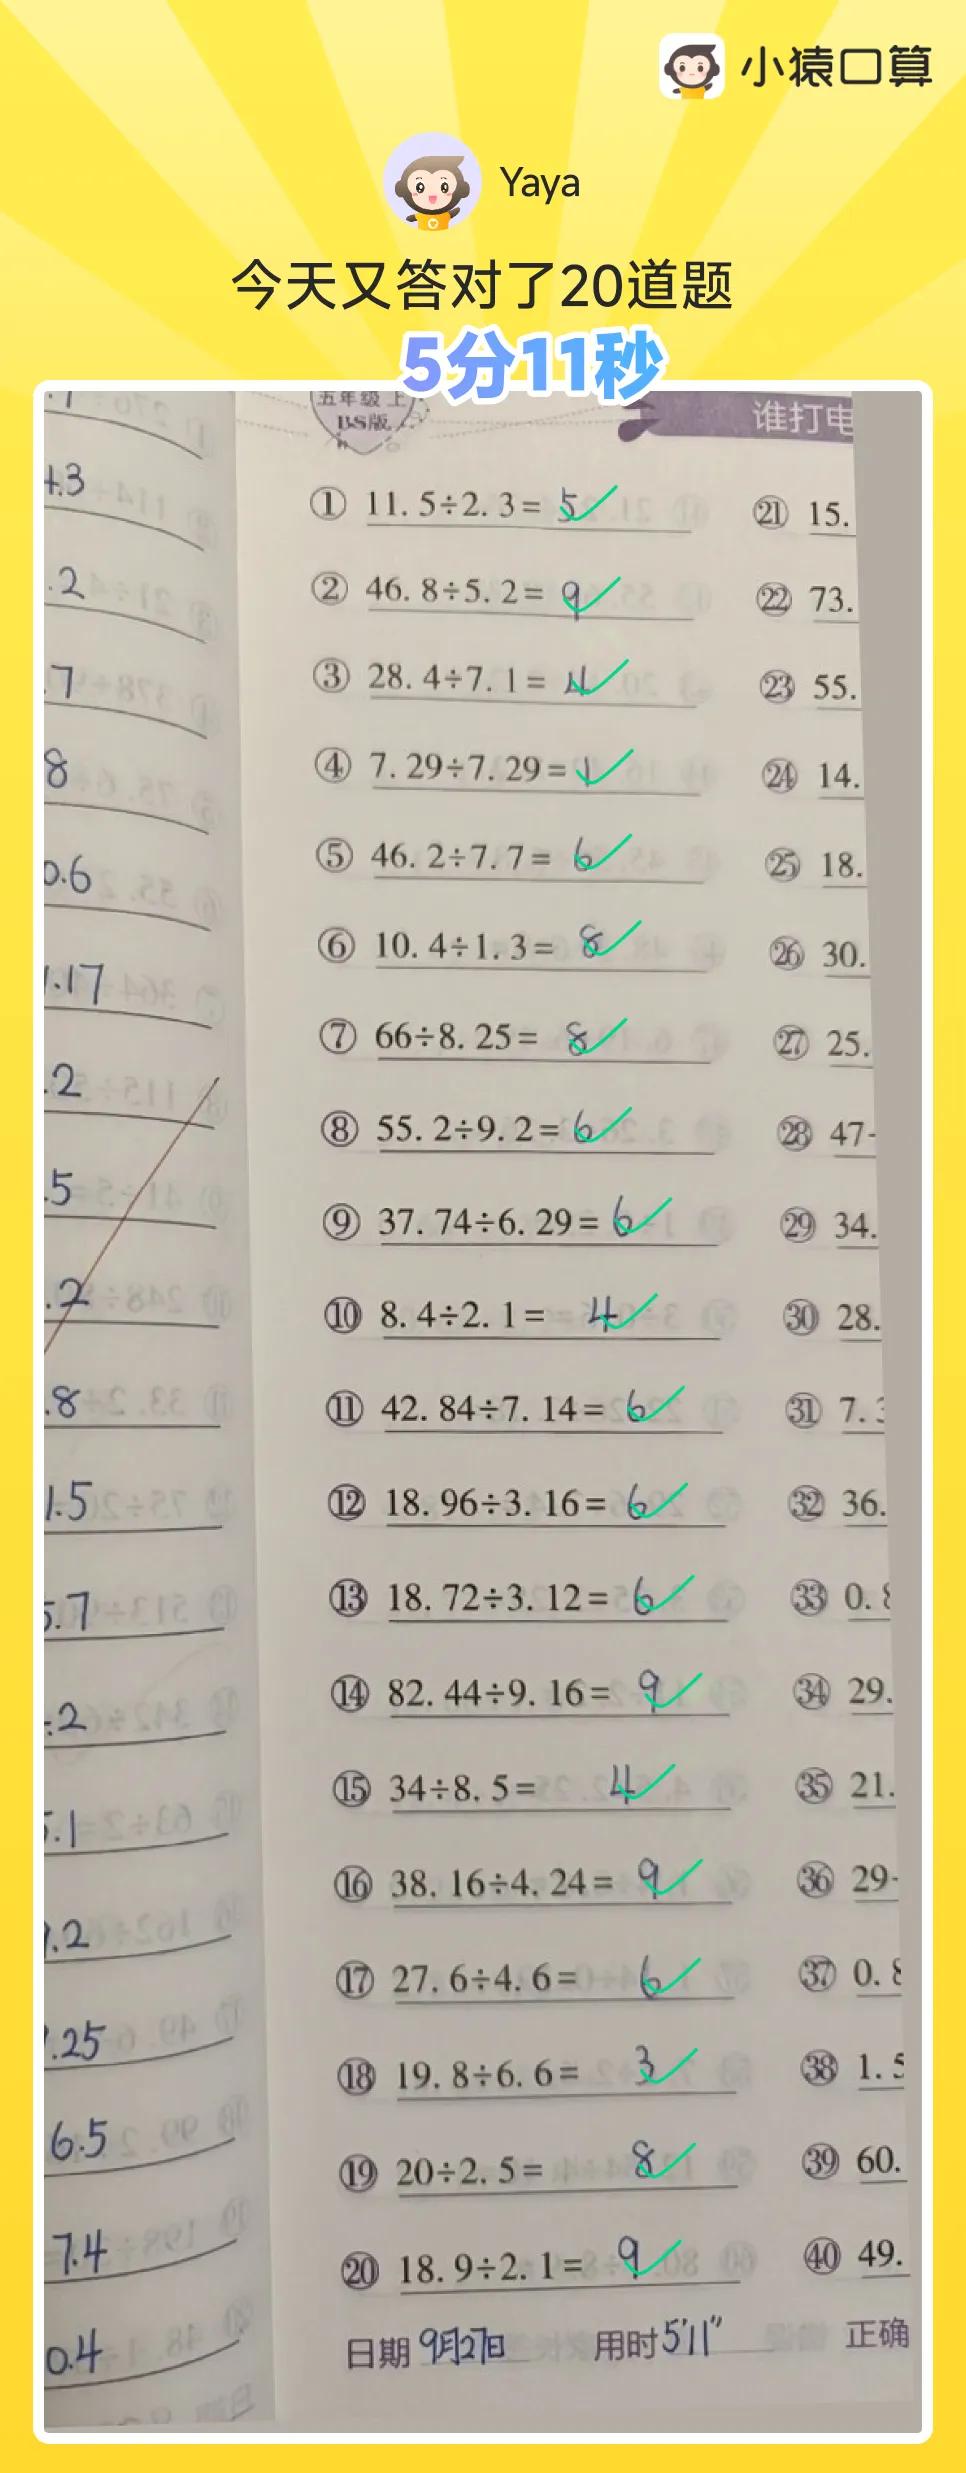 小猿口算
Yaya
今天又答对了20道题
5分11秒
五年级 上
BS版
谁打电
4.3
.2
.7
8
0.6
1.17
.2
.5
.2
.8
1.5
5.7
.2
5.1
.2
.25
6.5
7.4
0.4
① 11.5÷2.3= 5
② 46.8÷5.2= 9
③ 28.4÷7.1= 4
④ 7.29÷7.29= 1
⑤ 46.2÷7.7= 6
⑥ 10.4÷1.3= 8
⑦ 66÷8.25= 8
⑧ 55.2÷9.2= 6
⑨ 37.74÷6.29= 6
⑩ 8.4÷2.1= 4
⑪ 42.84÷7.14= 6
⑫ 18.96÷3.16= 6
⑬ 18.72÷3.12= 6
⑭ 82.44÷9.16= 9
⑮ 34÷8.5= 4
⑯ 38.16÷4.24= 9
⑰ 27.6÷4.6= 6
⑱ 19.8÷6.6= 3
⑲ 20÷2.5= 8
⑳ 18.9÷2.1= 9
㉑ 15.
㉒ 73.
㉓ 55.
㉔ 14.
㉕ 18.
㉖ 30.
㉗ 25.
㉘ 47
㉙ 34.
㉚ 28.
㉛ 7.3
㉜ 36.
㉝ 0.8
㉞ 29.
㉟ 21.
㊱ 29
㊲ 0.8
㊳ 1.5
㊴ 60.
㊵ 49.
日期 9月27日 用时 5'11" 正确